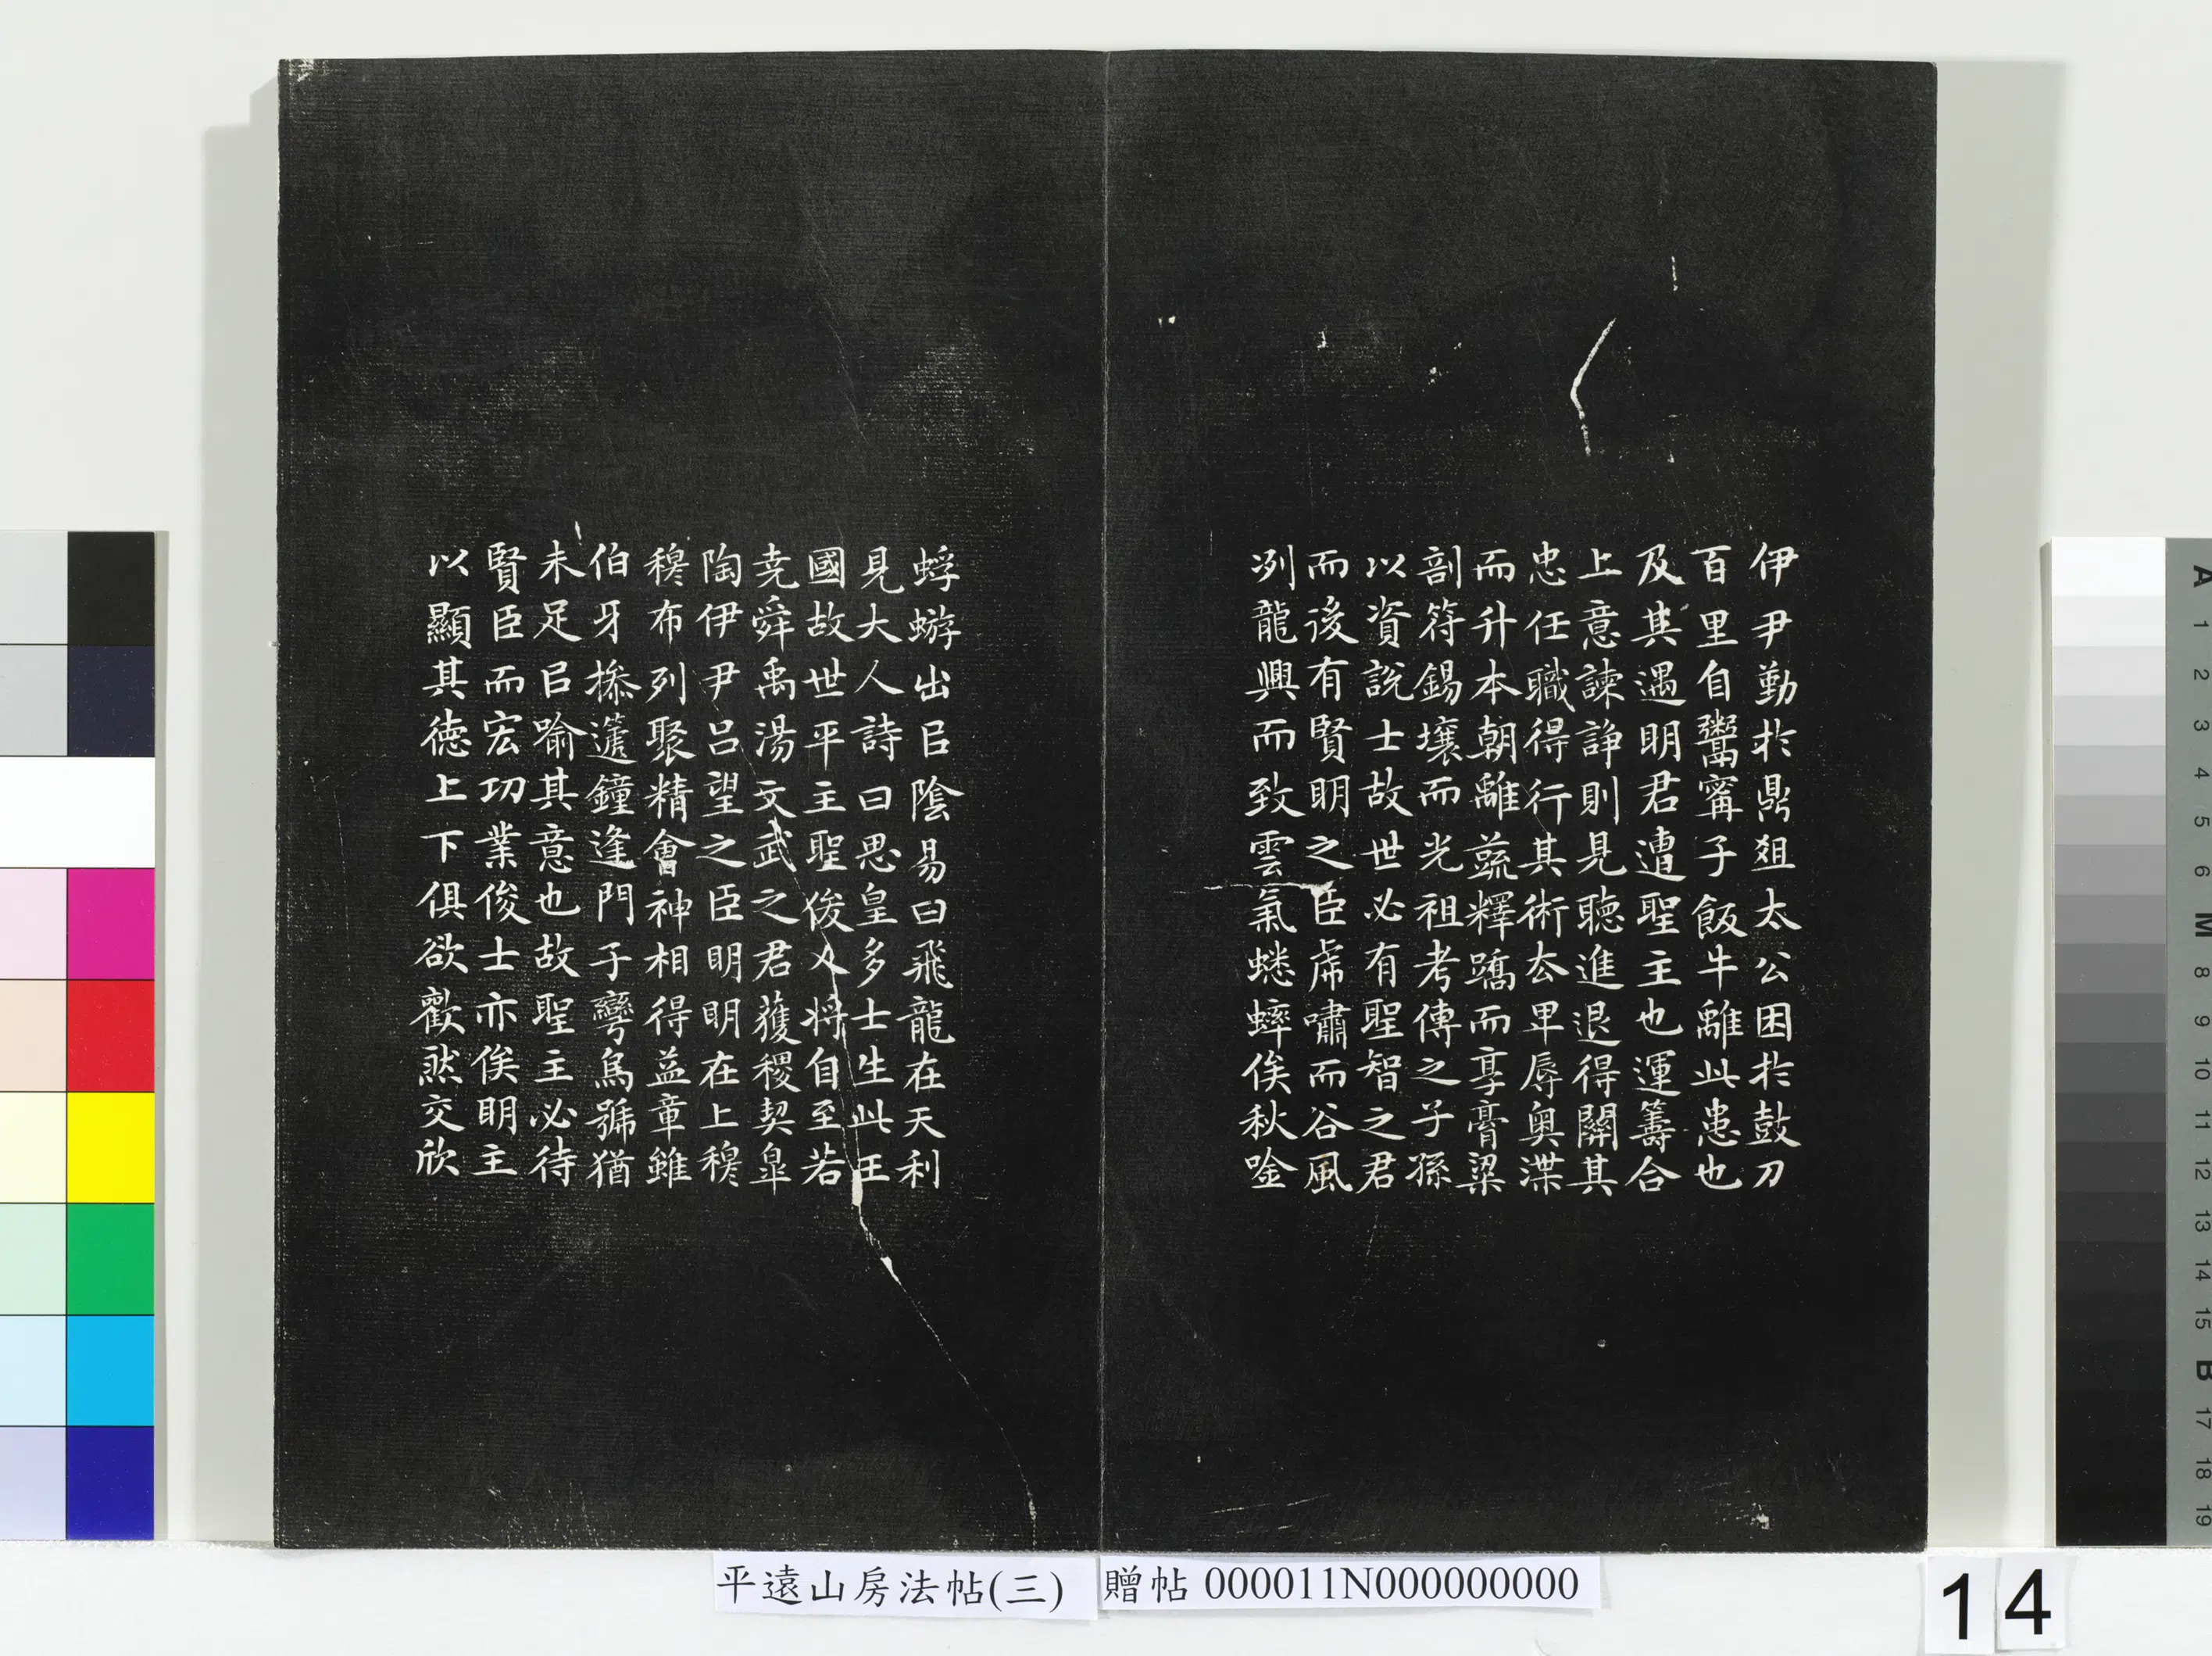 伊尹勤扵鼎爼太公困扵鼓刀
百里自鬻甯子飯牛離此患也
及其遇明君遭聖主也運籌合
上意諫諍則見聴進退得關其
忠任職得行其術厺卑辱奥渫
而升本朝離蔬釋蹻而享膏粱
剖符錫壤而光祖考傳之子孫
以資說士故世必有聖智之君
而後有賢明之臣虎嘯而谷風
冽龍興而致雲氣蟋蟀俟秋唫
蜉蝣出㠯陰易曰飛龍在天利
見大人詩曰思皇多士生此王
國故世平主聖俊乂将自至若
堯舜禹湯文武之君獲稷契皐
陶伊尹吕望之臣明明在上穆
穆布列聚精會神相得益章雖
伯牙摻遞鐘逢門子彎烏號猶
未足㠯喻其意也故聖主必待
賢臣而宏功業俊士亦俟明主
以顯其徳上下俱欲歡然交欣
平遠山房法帖(三)
贈帖 000011N000000000
14
A 1 2 3 4 5 6 M 8 9 10 11 12 13 14 15 B 17 18 19